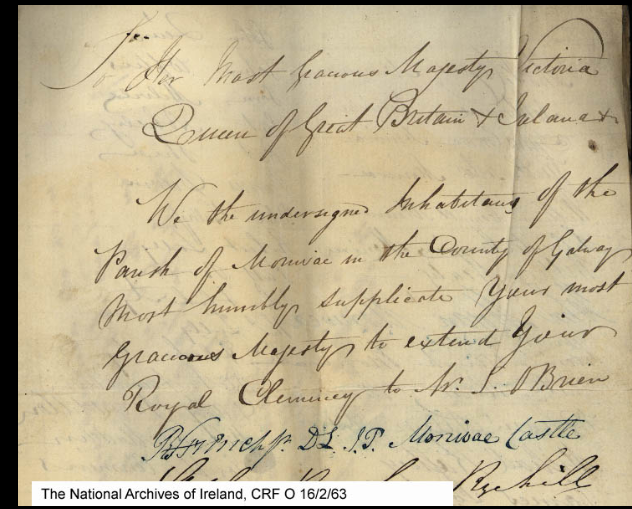 To
Her Most Gracious Majesty Victoria
Queen of Great Britain & Ireland &
We the undersigned Inhabitants of the
Parish of Monivae in the County of Galway
Most humbly supplicate Your most
Gracious Majesty to extend Your
Royal Clemency to Mr. S. OBrien
Ffrench DL J.P. Monivae Castle
Ryehill
The National Archives of Ireland, CRF O 16/2/63